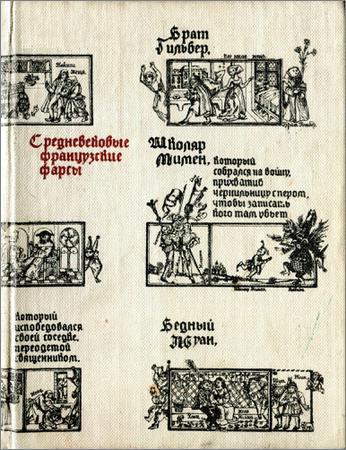 Брат
Гильбер,
Средневековые
французские
фарсы
Школяр
Мимен, который
собрался на войну,
прихватив
чернильницу с пером,
чтобы записать
кого там убьет
который
исповедовался
своей соседке,
переодетой
священником.
Бедный
Жуан,